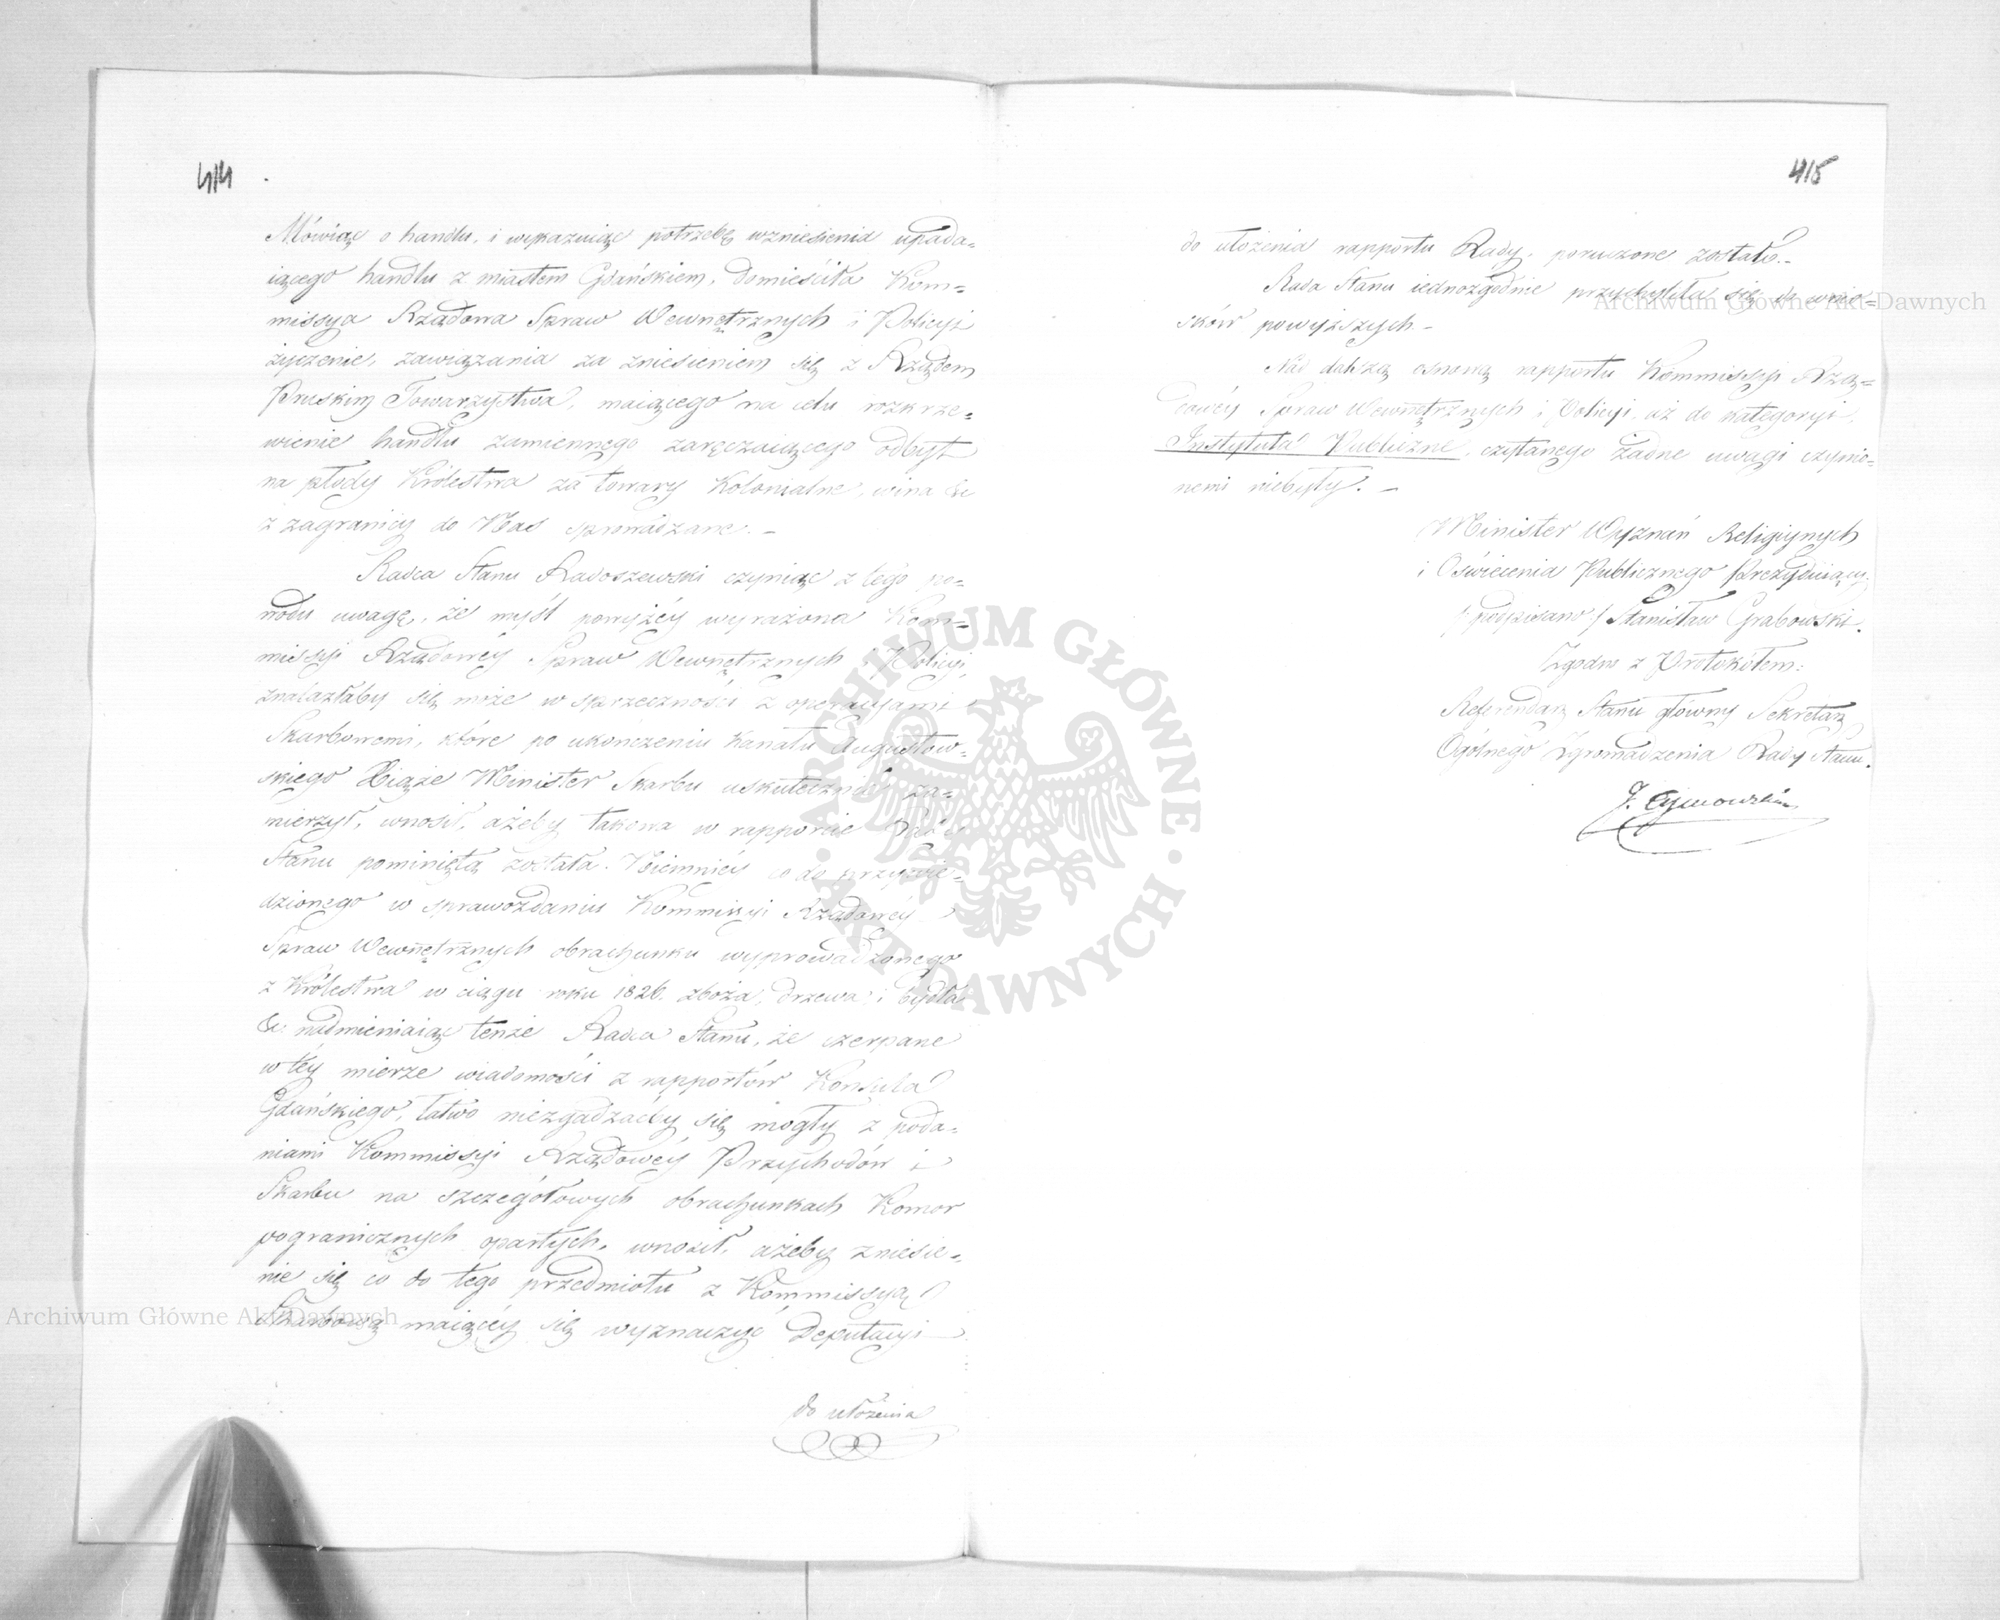 414
Mówiąc o handlu, i wykazuiąc potrzebę wzniesienia upada=
iącego handlu z miastem Gdańskiem, domieściła Kom=
missya Rządowa Spraw Wewnętrznych i Policyi
życzenie, zawiązania za zniesieniem się z Rządem
Pruskim Towarzystwa, maiącego na celu rozkrze=
wienie handlu zamiennego zaręczaiącego odbyt
na płody Królestwa za towary Kolonialne, wina &c
z zagranicy do Nas sprowadzane. –
Radca Stanu Radoszewski czyniąc z tego po=
wodu uwagę, że myśl powyżéy wyrażona Kom=
missyi Rządowéy Spraw Wewnętrznych i Policyi,
znalazłaby się może w sprzeczności z operacyami
Skarbowemi, które po ukończeniu Kanału Augustow=
skiego Xiąże Minister Skarbu uskutecznić za=
mierzył, wnosił, ażeby takowa w rapporcie Rady
Stanu pominiętą została. Niemniéy co do przywie=
dzionego w sprawozdaniu Kommissyi Rządowéy
Spraw Wewnętrznych obrachunku wyprowadzonego
z Królestwa w ciągu roku 1826. zboża, drzewa i bydła
&c. nadmieniaiąc tenże Radca Stanu, że czerpane
w téy mierze wiadomości z rapportów Konsula
Gdańskiego, łatwo niezgadzaćby się mogły z poda=
niami Kommissyi Rządowéy Przychodów i
Skarbu na szczegółowych obrachunkach Komor
pogranicznych opartych, wnosił, ażeby zniesie=
nie się co do tego przedmiotu z Kommissyą
Skarbową maiącéy się wyznaczyć Deputacyi
do ułożenia
415
do ułożenia rapportu Rady, poruczone zostało. –
Rada Stanu iednozgodnie przychyliła się do wnio=
sków powyższych –
Nad dalszą osnową rapportu Kommissyi Rzą=
dowéy Spraw Wewnętrznych i Policyi aż do kategoryi,
Instytuta Publiczne, czytanego żadne uwagi czynio=
nemi niebyły. –
Minister Wyznań Religiynych
i Oświecenia Publicznego Prezyduiący,
/: podpisano :/ Stanisław Grabowski.
Zgodno z Protokółem:
Referendarz Stanu główny Sekretarz
Ogólnego Zgromadzenia Rady Stanu.
J. Tymowski
ARCHIWUM GŁÓWNE
AKT DAWNYCH
Archiwum Główne Akt Dawnych
Archiwum Główne Akt Dawnych